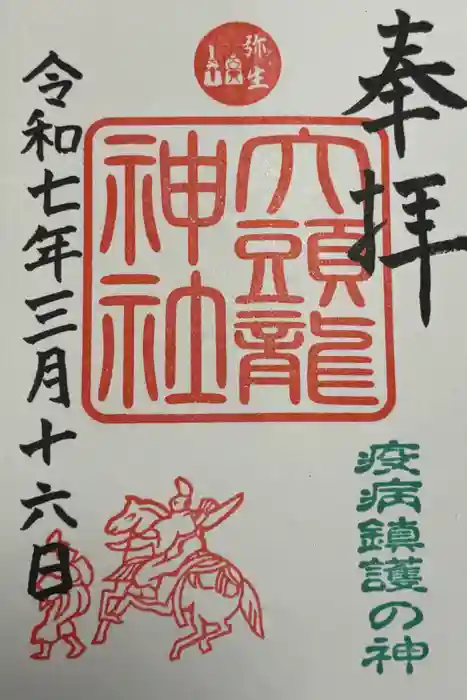 奉拝
弥生
六頭龍
神社
疫病鎮護の神
令和七年三月十六日